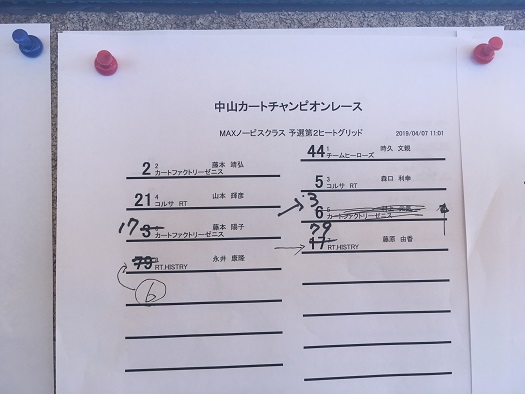 中山カートチャンピオンレース
MAXノービスクラス 予選第2ヒートグリッド 2019/04/07 11:01
44 1 時久 文毅
チームヒーローズ
2 2 藤本 靖弘
カートファクトリーゼニス
5 3 森口 利幸
コルサ RT
21 4 山本 輝彦
コルサ RT
3
6 5
カートファクトリーゼニス
17
3 藤本 陽子
カートファクトリーゼニス
79
17 7 藤原 由香
RT.HISTRY
79 8 永井 康隆
RT.HISTRY
6